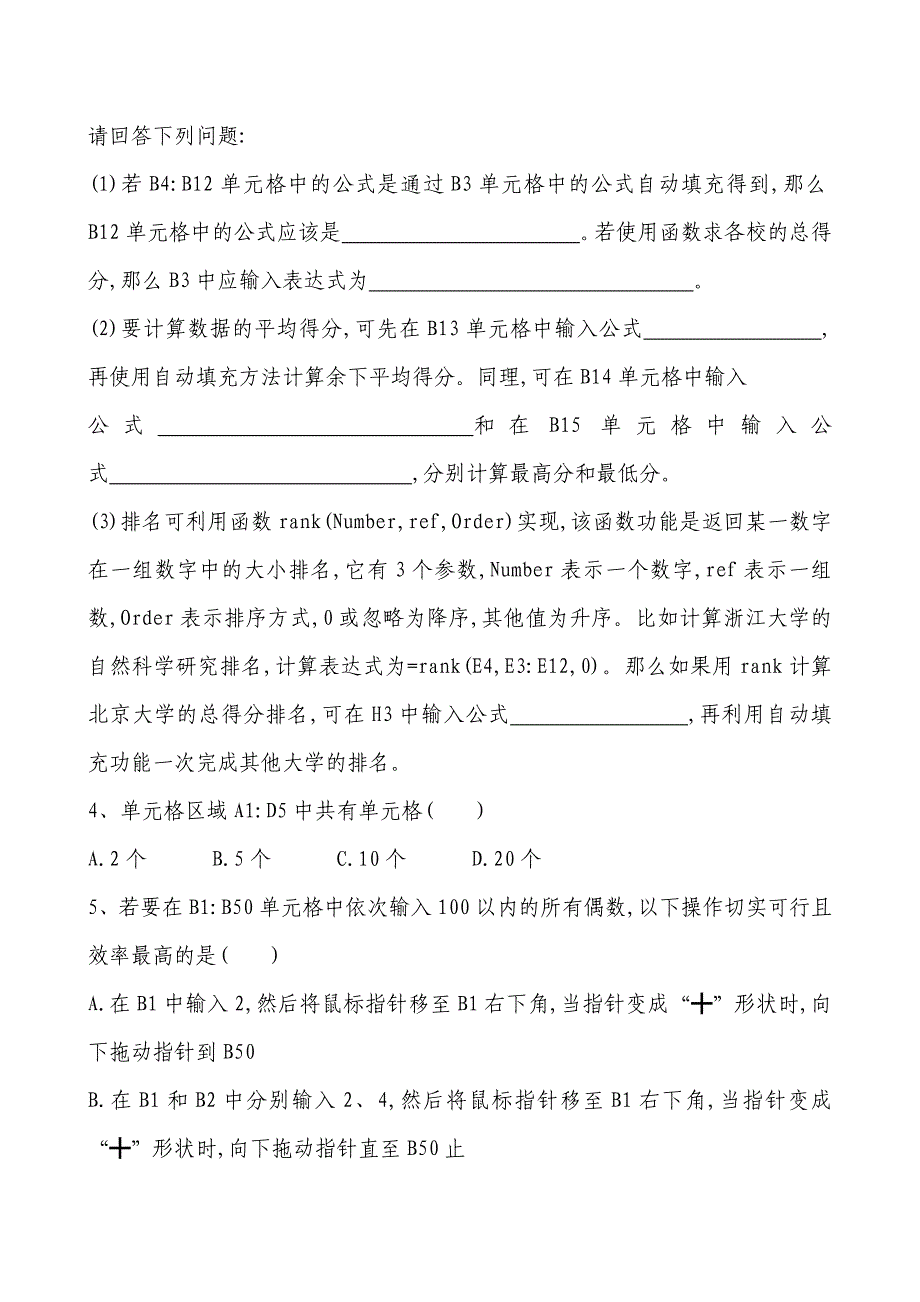 请回答下列问题:
(1)若 B4:B12 单元格中的公式是通过 B3 单元格中的公式自动填充得到,那么
B12 单元格中的公式应该是____________________。若使用函数求各校的总得
分,那么 B3 中应输入表达式为___________________________。
(2)要计算数据的平均得分,可先在 B13 单元格中输入公式_______________,
再使用自动填充方法计算余下平均得分。同理,可在 B14 单元格中输入
公式__________________________和在 B15 单元格中输入公
式_________________________,分别计算最高分和最低分。
(3)排名可利用函数 rank(Number,ref,Order)实现,该函数功能是返回某一数字
在一组数字中的大小排名,它有 3 个参数,Number 表示一个数字,ref 表示一组
数,Order 表示排序方式,0 或忽略为降序,其他值为升序。比如计算浙江大学的
自然科学研究排名,计算表达式为=rank(E4,E3:E12,0)。那么如果用 rank 计算
北京大学的总得分排名,可在 H3 中输入公式_______________,再利用自动填
充功能一次完成其他大学的排名。
4、单元格区域 A1:D5 中共有单元格( )
A.2 个 B.5 个 C.10 个 D.20 个
5、若要在 B1:B50 单元格中依次输入 100 以内的所有偶数,以下操作切实可行且
效率最高的是( )
A.在 B1 中输入 2,然后将鼠标指针移至 B1 右下角,当指针变成“╋”形状时,向
下拖动指针到 B50
B.在 B1 和 B2 中分别输入 2、4,然后将鼠标指针移至 B1 右下角,当指针变成
“╋”形状时,向下拖动指针直至 B50 止